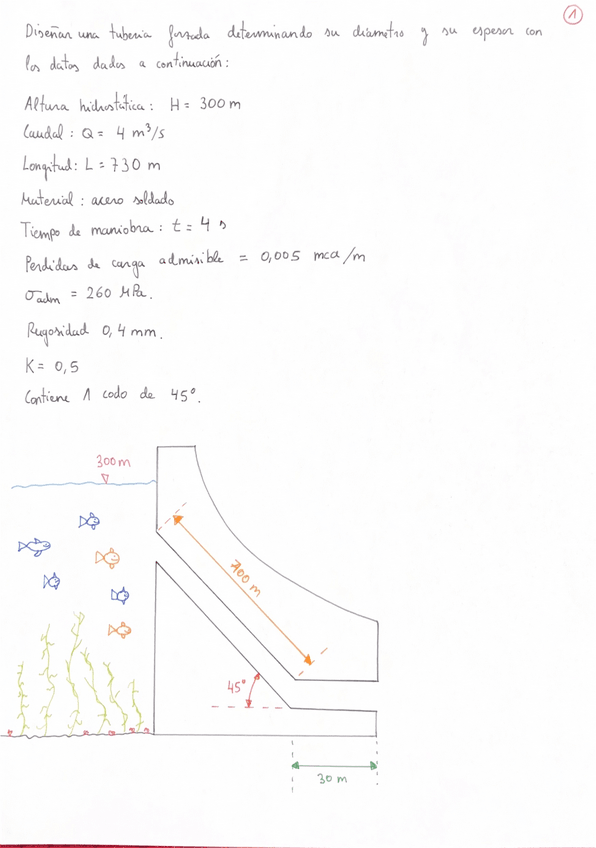 1
Diseñar una tuberia forzada determinando su diametro y su espesor con
los datos dados a continuación:
Altura hidrostática: H = 300 m
Caudal: Q = 4 m³/s
Longitud: L = 730 m
Material: acero soldado
Tiempo de maniobra: t = 4 s
Perdidas de carga admisible = 0,005 mca/m
σadm = 260 MPa.
Rugosidad 0,4 mm.
K = 0,5
Contiene 1 codo de 45°.
300 m
700 m
45°
30 m